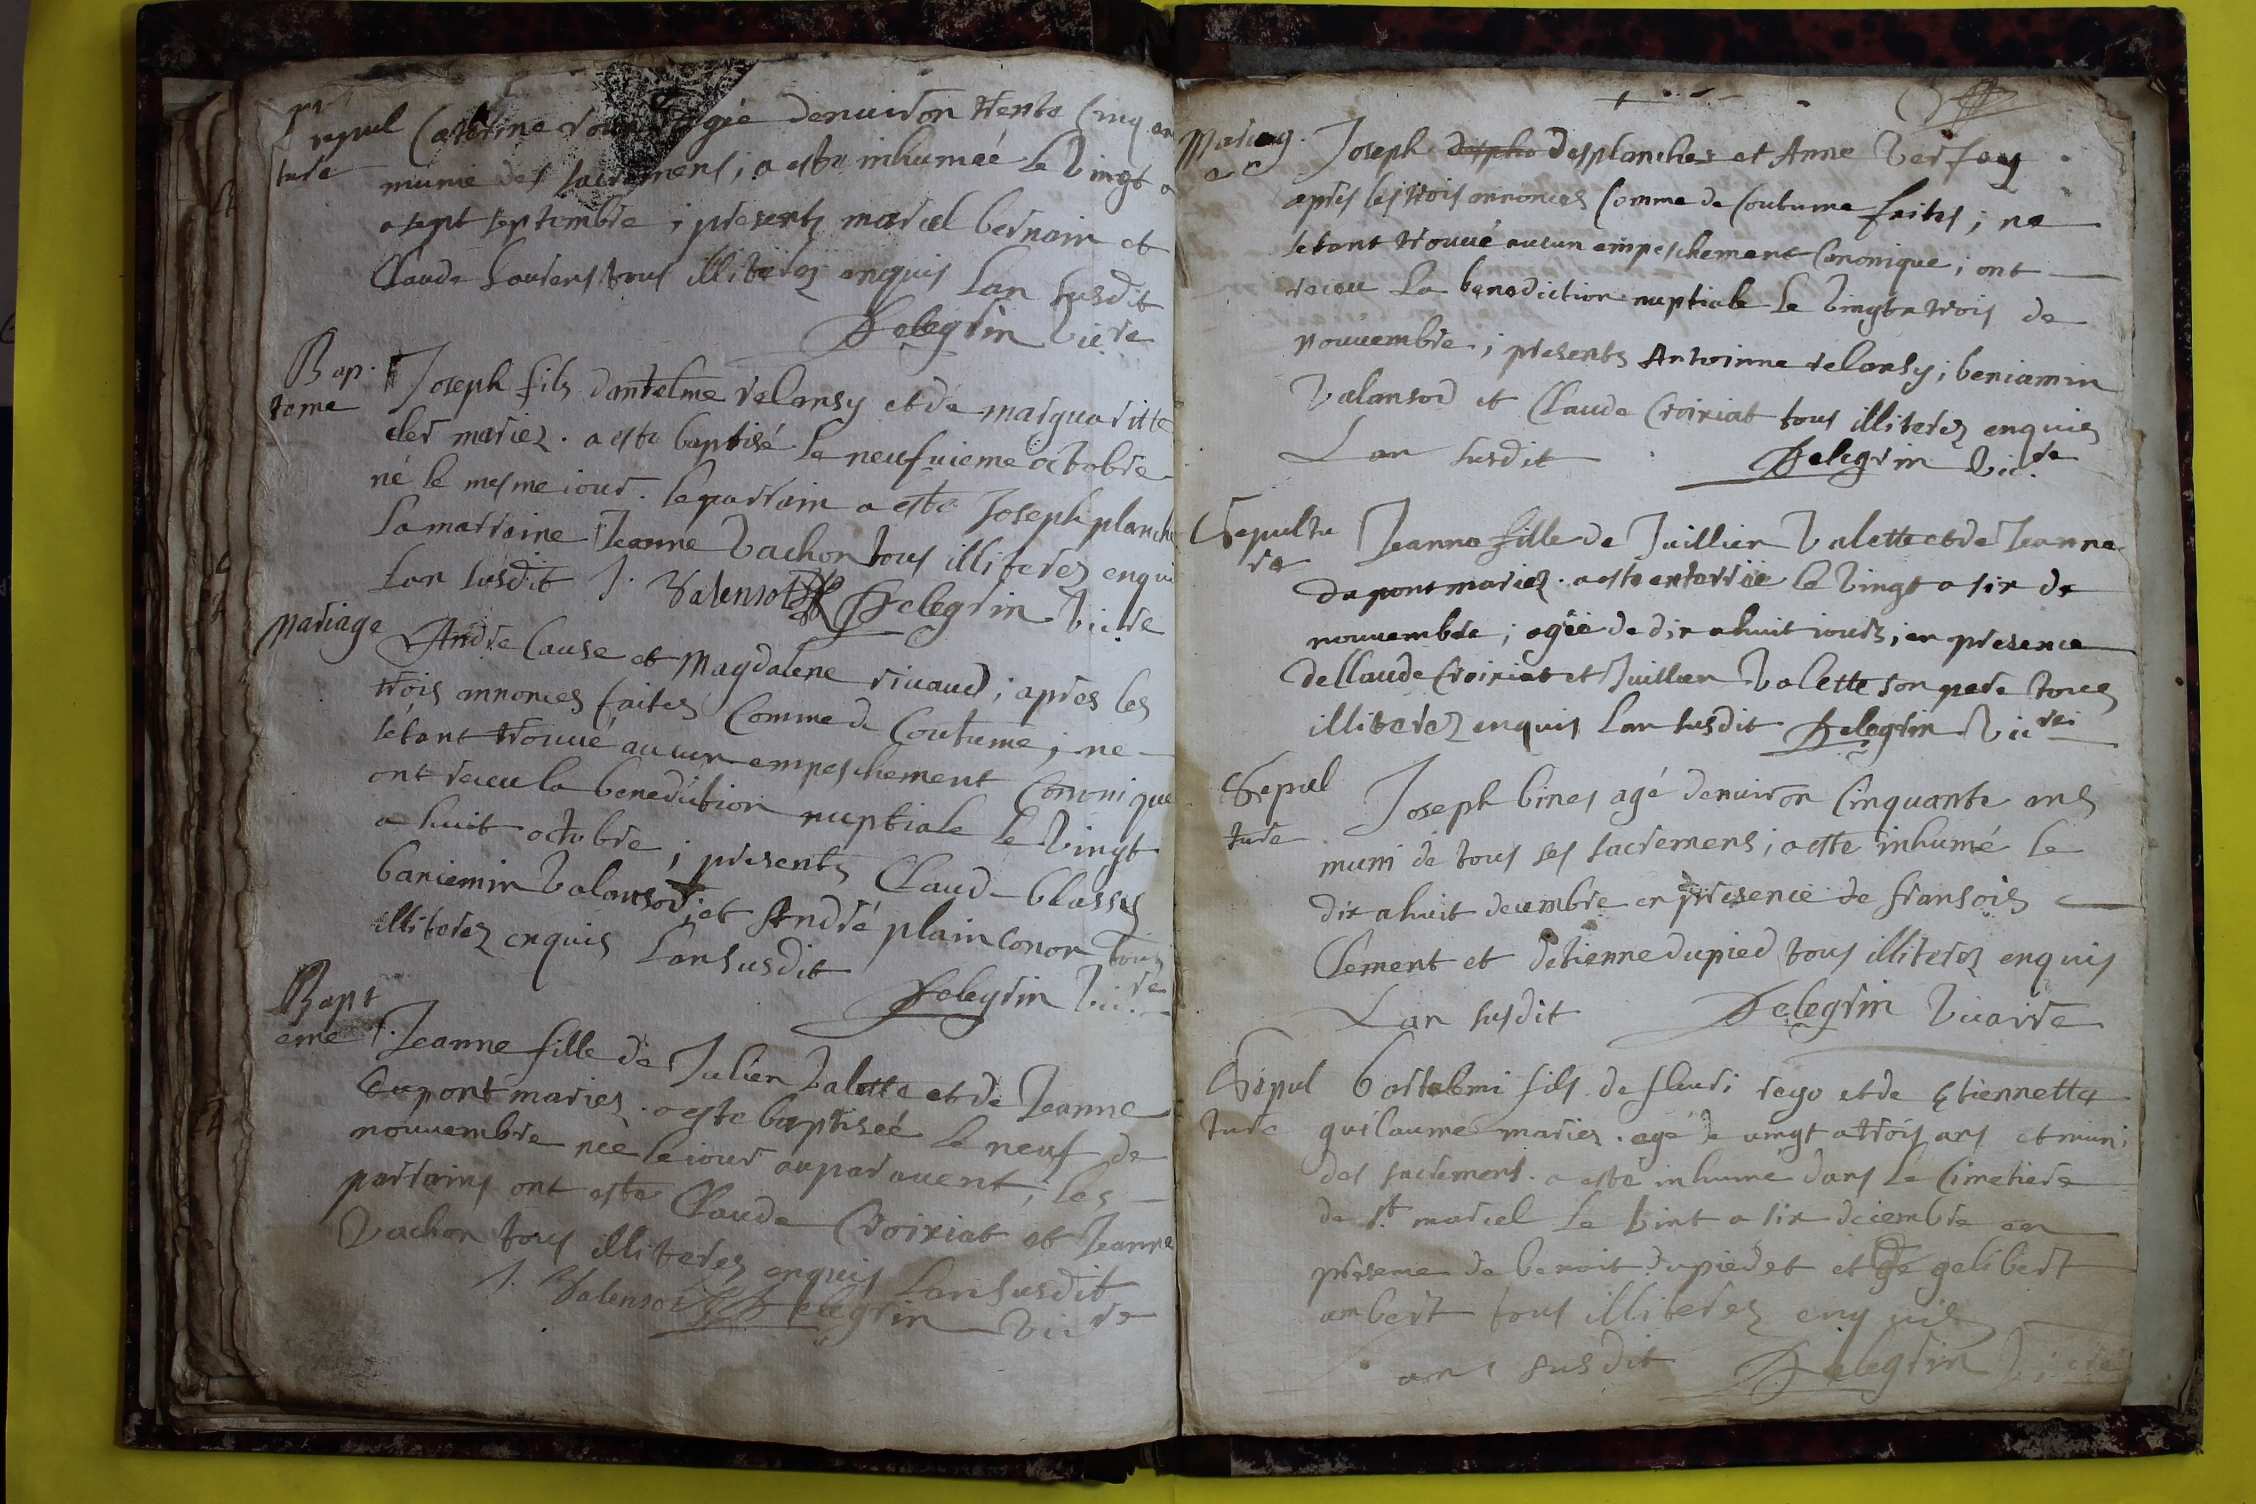 Sepul Caterine agée denuiron trente cinq an
ture munie des sacremens ; a esté inhumeé le vingt a
a sept septembre ; presents marcel bernoin et
Claude tous illiterez enquis Lan susdit
Pelegrin vicre
Bap Joseph fils dantelme relansy et de marguaritte
teme mariez . a esté baptisé le neufuieme octobre
né le mesme iour . le parrain a esté Joseph planche
La marraine Jeanne Vachon tous illiterez enqui
Lan susdit J. Valensot Pelegrin vicre
Mariage Andre Cause et Magdalene riuaud ; apres les
trois annonces faites Comme de Coutume ; ne
setant trouué aucun empeschement Cononique
ont receu la benediction nuptiale le vingt
a huit octobre ; presents Claude blasses
beniemin Valansod ; et André plain Conon tous
illiterez enquis Lan susdit
Pelegrin vicre
Bapt
eme Jeanne fille de Julien Valette et de Jeanne
dupont mariez . a este baptiseé le neuf de
nouuembre neè le iour auparauent ; les
parrains ont esté Claude Croiziat et Jeanne
Vachon tous illiterez enquis Lan susdit
J. Valensot Pelegrin vicre
Mariag
e Joseph desplanches et Anne Verfay
apres les trois annonces Comme de Coutume faites ; ne
setant trouué aucun empeschement Cononique ; ont
receu La benediction nuptiale le vingt a trois de
nouuembre ; presents Antoinne relansy ; beniamin
Valansod et Claude Croiziat tous illiterez enquis
Lan susdit Pelegrin vicre
Sepultu
re Jeanne fille de Juillien Valette et de Jeanne
dupont mariez . a esté enterrée le vingt a six de
nouuembre ; ageè de dix a huit iours ; en presence
de Claude Croiziat et Juillien Valette son pere tous
illiterez enquis Lan susdit Pelegrin vicre
Sepul Joseph bines agé denuiron Cinquante ans
ture muni de tous ses sacremens ; a este inhumé le
dix a huit decembre en presence de fransois
Clement et detienne dupied tous illiterez enquis
Lan susdit Pelegrin vicaire
Sepul bartelemi fils de fleuri reyo et de Etiennette
ture guilaume mariez . agé de uingt a trois ans et muni
des sacremens . a esté inhumé dans le Cimetiere
de st marcel le vint a six decembre en
presence de benoit dupied et de gelibert
ambert tous illiterez enquis
Lan susdit Pelegrin vicre